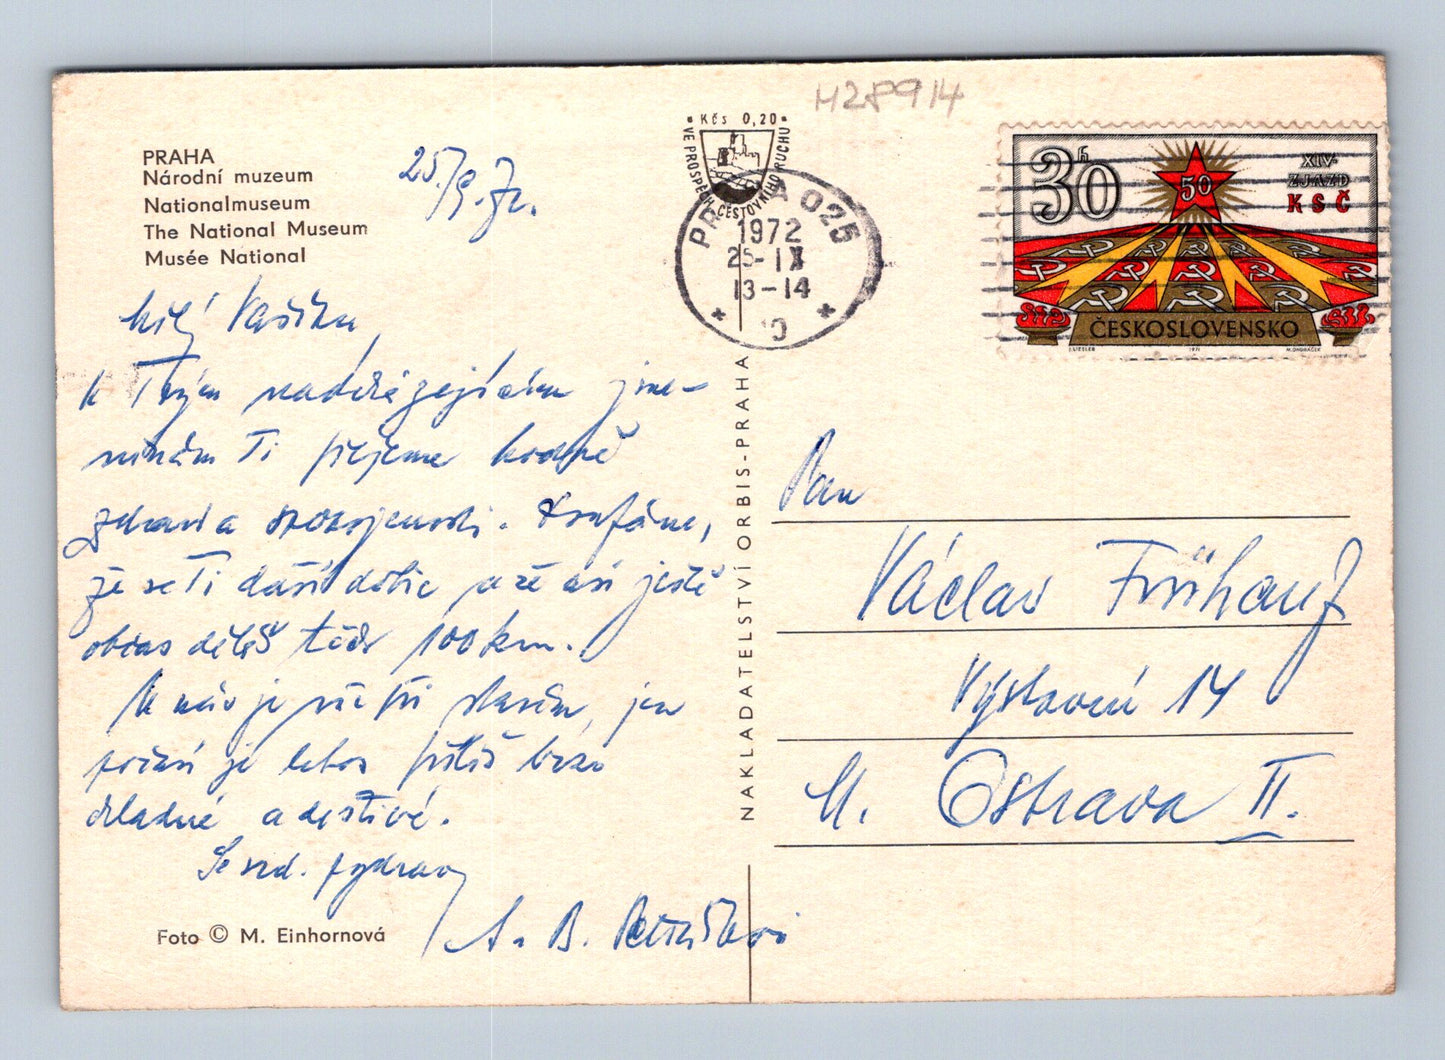 H28914
PRAHA
Národní muzeum
Nationalmuseum
The National Museum
Musée National
25/9.72.
Kčs 0,20
VE PROSPĚCH CESTOVNÍHO RUCHU
PRAHA 025
1972
25-IX
13-14
30h
50
XIV.
ZJAZD
KSČ
ČESKOSLOVENSKO
1971
Milý Vašíku,
k Tvým nadcházejícím jme-
ninám Ti přejeme hodně
zdraví a spokojenosti. Doufáme,
že se Ti daří dobře a že asi ještě
občas děláš těch 100 km.
U nás je vše při starém, jen
počasí je letos příliš brzo
chladné a deštivé.
Srd. pozdravy
A. a B.
NAKLADATELSTVÍ ORBIS-PRAHA
Pan
Václav Frühauf
Výstavní 14
M. Ostrava II.
Foto © M. Einhornová